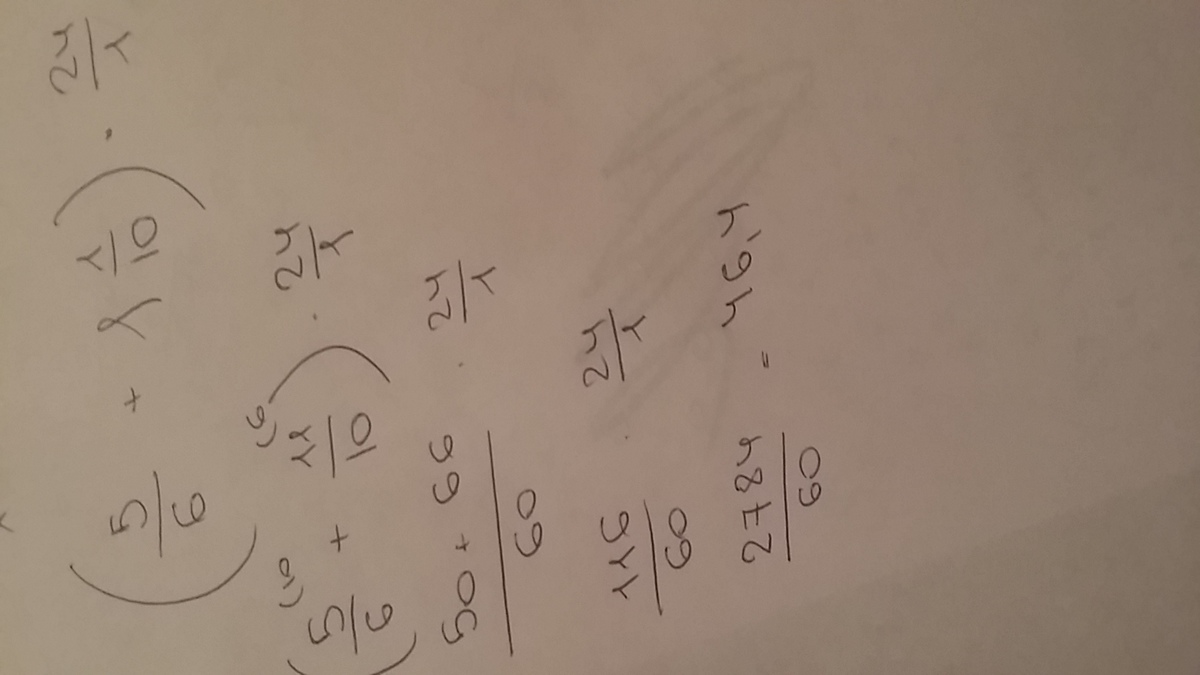 (5/6 + 1 1/10) · 24/1
(5/6 (10 + 11/10 (6) · 24/1
50 + 66/60 · 24/1
116/60 · 24/1
2784/60 = 46,4